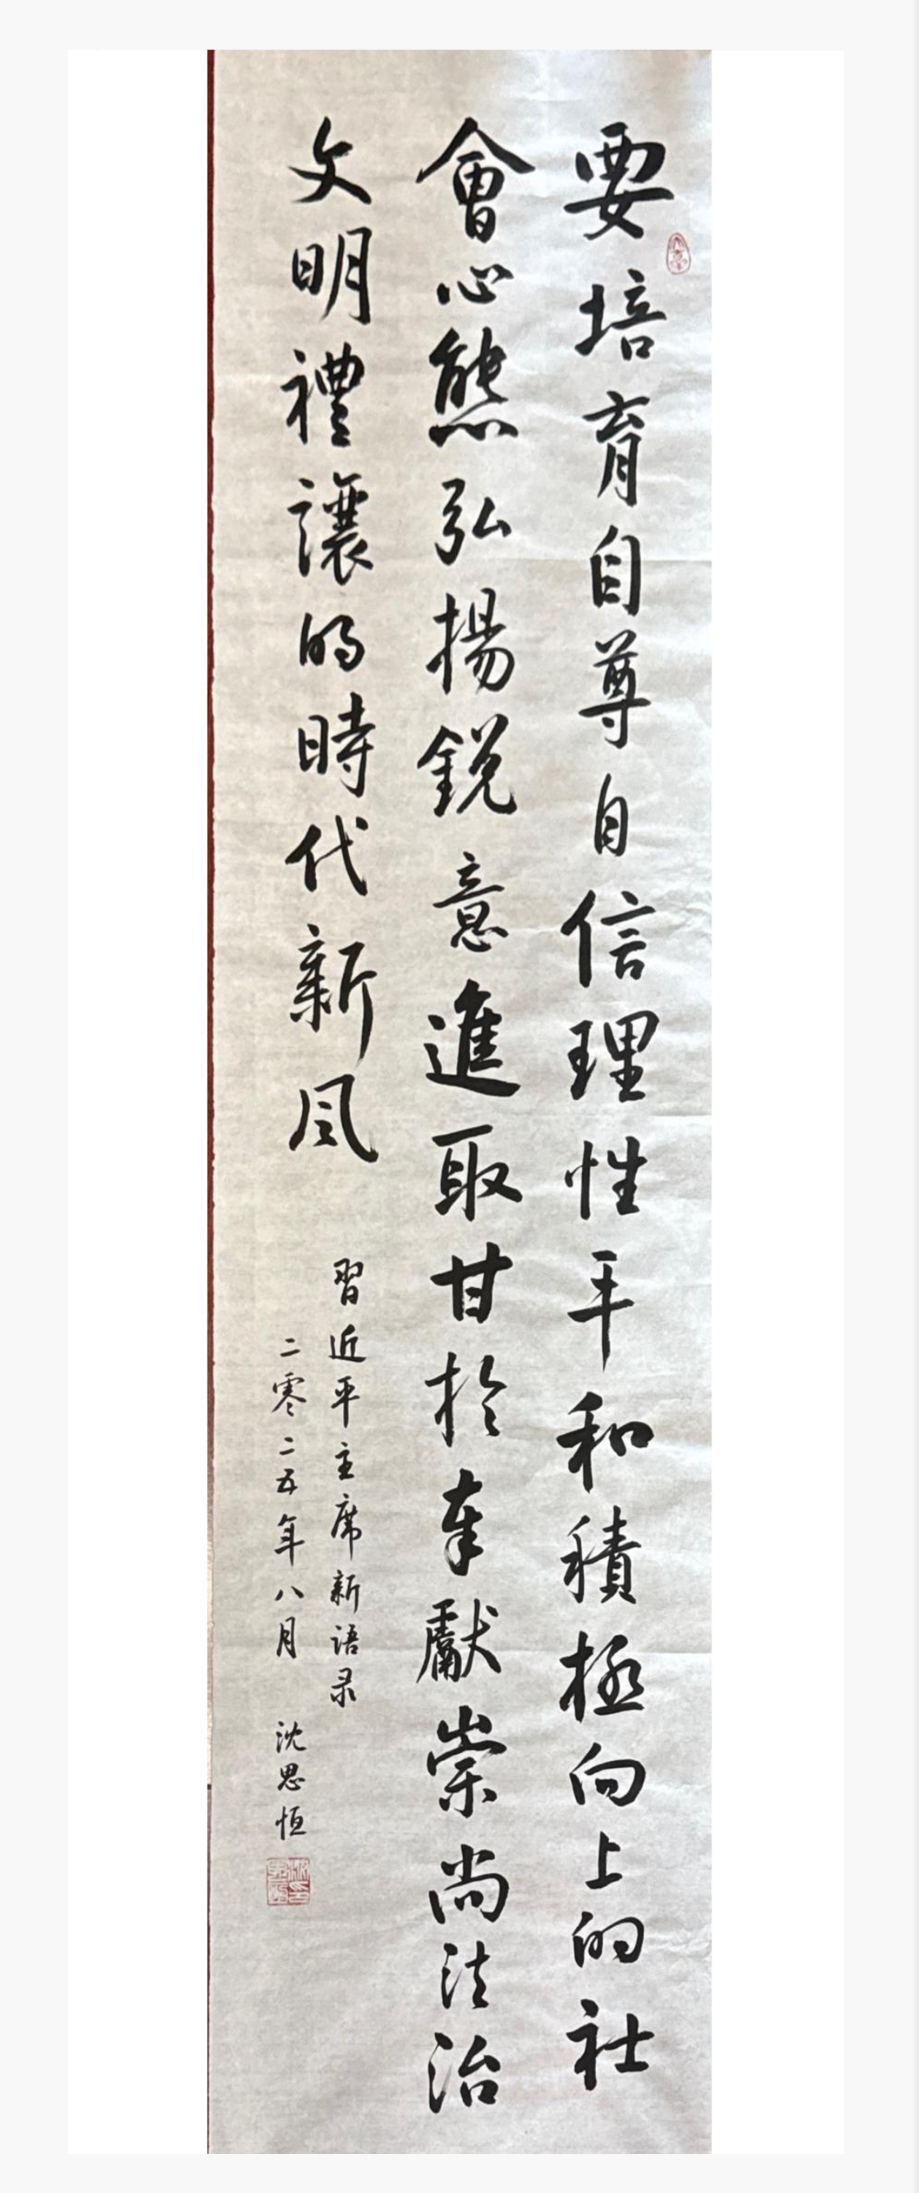 要培育自尊自信理性平和積極向上的社
會心態弘揚銳意進取甘於奉獻崇尚法治
文明禮讓的時代新风
習近平主席新语录
二零二五年八月 沈思恒